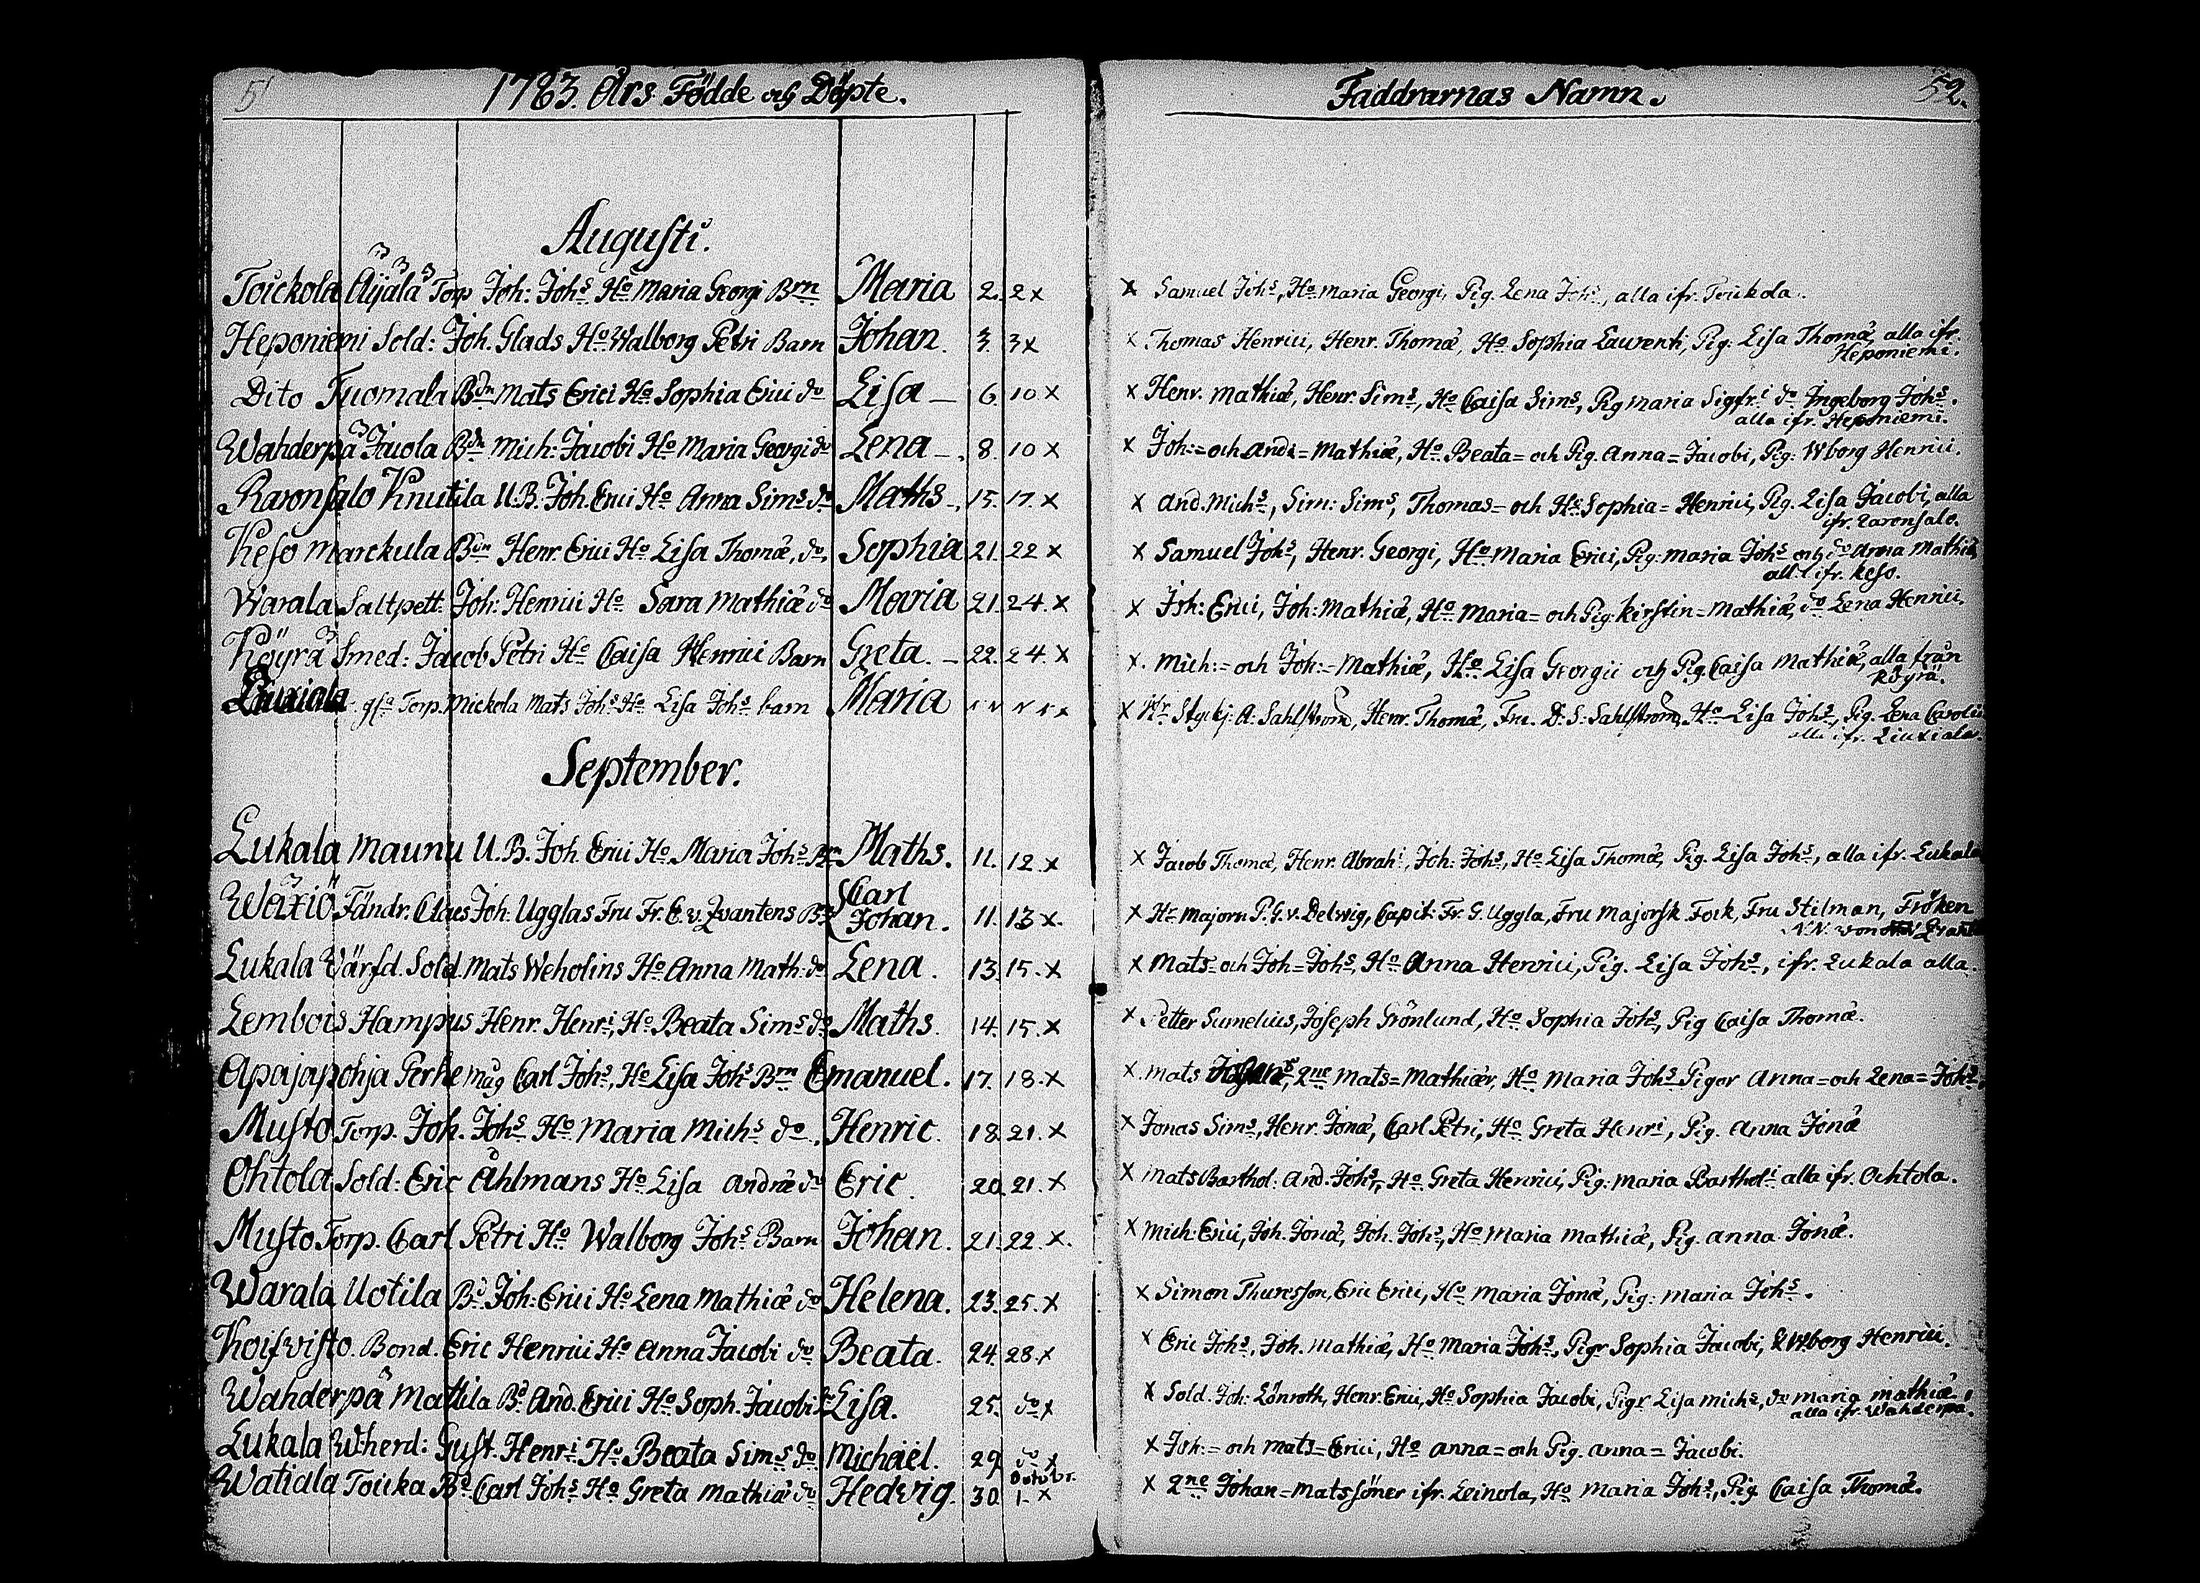 51
1783. Års Födde och Döpte.
Augusti.
Toickola Äijälä Torp Joh: Johs. Ho Maria Georgi Brn Maria 2. 2 x
Heponiemi Sold: Joh. Glads Ho Walborg Petri Barn Johan. 3. 3 x
Dito Tuomala Bdn Mats Erici Ho Sophia Erici do Lisa 6. 10 x
Wahderpä Jäuola Bdn Mich: Jacobi Ho Maria Georgi do Lena 8. 10 x
Raronsalo Knutila U.B. Joh. Erici Ho Anna Sims do Maths 15. 17. x
Keso Marckula Bdn Henr. Erici Ho Lisa Thomæ, do, Sophia 21. 22 x
Warala Saltpett: Joh: Henrici Ho Sara Mathiæ do Maria 21. 24. x
Köyrä Smed: Jacob Petri Ho Caisa Henrici Barn Greta. 22. 24. x
Liuxiala Torp. Mickola Mats Johs Ho Lisa Johs barn Maria x
September.
Lukala Maunu U.B. Joh. Erici Ho. Maria Johs Brn Maths. 11. 12. x
Wäxiö Fändr. Claes Joh: Ugglas Fru Fr. C. v. Qvantens Carl Johan. 11. 13 x.
Lukala Värfd. Sold. Mats Weholins Ho Anna Math: do Lena. 13. 15. x
Lembois Hampus Henr. Henri, Ho Beata Sims do Maths. 14. 15. x
Apajapohja Perhe måg Carl Johs, Ho Lisa Johs Brn Emanuel. 17. 18. x
Musto Torp. Joh. Johs Ho Maria Michs do. Henric. 18. 21. x
Ohtola Sold: Eric Åhlmans Ho Lisa Andræ do Eric. 20. 21. x
Musto Torp. Carl Petri Ho Walborg Johs Barn Johan. 21. 22. x.
Warala Uotila Bd Joh: Erici Ho Lena Mathiæ do Helena. 23. 25. x
Koisvisto. Bond. Eric Henrici Ho Anna Jacobi do Beata. 24. 28. x
Wahderpä Mattila Bd And. Erici Ho Soph. Jacobi Lisa. 25. do x
Lukala Wherd: Gust. Henri Ho Beata Sims do Michaël. 29. do x
Octobr.
Watiala Toicka Bd Carl Johs Ho Greta Mathiæ do Hedvig. 30. 1. x
Faddrarnas Namn.
52.
x Samuel Johs, Ho Maria Georgi, Pig. Lena Johs, alla ifr. Toickola.
x Thomas Henrici, Henr. Thomæ, Ho Sophia Laurenti, Pig: Lisa Thomæ, alla ifr.
Heponiemi.
x Henr. Mathiæ, Henr. Sims, Ho Caisa Sims, Pig Maria Sigfri do Ingeborg Johs.
alla ifr. Heponiemi.
x Joh:= och And:= Mathiæ, Ho Beata= och Pig. Anna= Jacobi, Pig: Wborg Henrici.
x And. Michs, Sim: Sims, Thomas= och Ho Sophia= Henrici, Pig. Lisa Jacobi, alla
ifr. Raronsalo.
x Samuel Johs, Henr. Georgi, Ho Maria Erici, Pig: Maria Johs och do Anna Mathiæ
alla ifr. Keso.
x Joh: Erici, Joh: Mathiæ, Ho Maria= och Pig: Kirstin= Mathiæ, do Lena Henrici.
x. Mich:= och Joh:= Mathiæ, Ho Lisa Georgii och Pig. Caisa Mathiæ, alla från
Köyrä.
x Hr A: Sahlstrom, Henr. Thomæ, Fru. D: S: Sahlstrom, Ho Lisa Johs, Pig. Lena Caroli
alla ifr. Liuxiala.
x Jacob Thomæ, Henr. Abrahi, Joh: Johs, Ho Lisa Thomæ, Pig. Lisa Johs, alla ifr. Lukala
x Hr Majorn P. G. v. Delwig, Capit: Fr. G. Uggla, Fru Majorsk. Fock, Fru Stilman, Fröken
N.N. von
x Mats= och Joh= Johs, Ho Anna Henrici, Pig. Lisa Johs, ifr. Lukala alla.
x Petter Sumelius, Joseph Grönlund, Ho Sophia Johs, Pig Caisa Thomæ.
x. Mats 2ne Mats= Mathiær, Ho Maria Johs Pigor Anna= och Lena= Johs.
x Jonas Sims, Henr. Jonæ, Carl Petri, Ho Greta Henri, Pig. Anna Jonæ
x Mats Barthol: And. Johs, Ho Greta Henrici, Pig: Maria Bartholi alla ifr. Ochtola.
x Mich: Erici, Joh. Jonæ, Joh. Johs, Ho Maria Mathiæ, Pig. Anna Jonæ.
x Simon Thuresson, Eric Erici, Ho Maria Jonæ, Pig: Maria Johs.
x Eric Johs, Joh. Mathiæ, Ho Maria Johs, Pigr Sophia Jacobi, & Wborg Henrici.
x Sold. Joh: Lönroth, Henr. Erici, Ho Sophia Jacobi, Pigr Lisa Michs, do Maria Mathiæ
alla ifr. Wahderpä.
x Joh:= och Mats= Erici, Ho Anna= och Pig. Anna= Jacobi.
x 2ne Johan= Matssöner ifr. Leinola, Ho Maria Johs, Pig Caisa Thomæ.